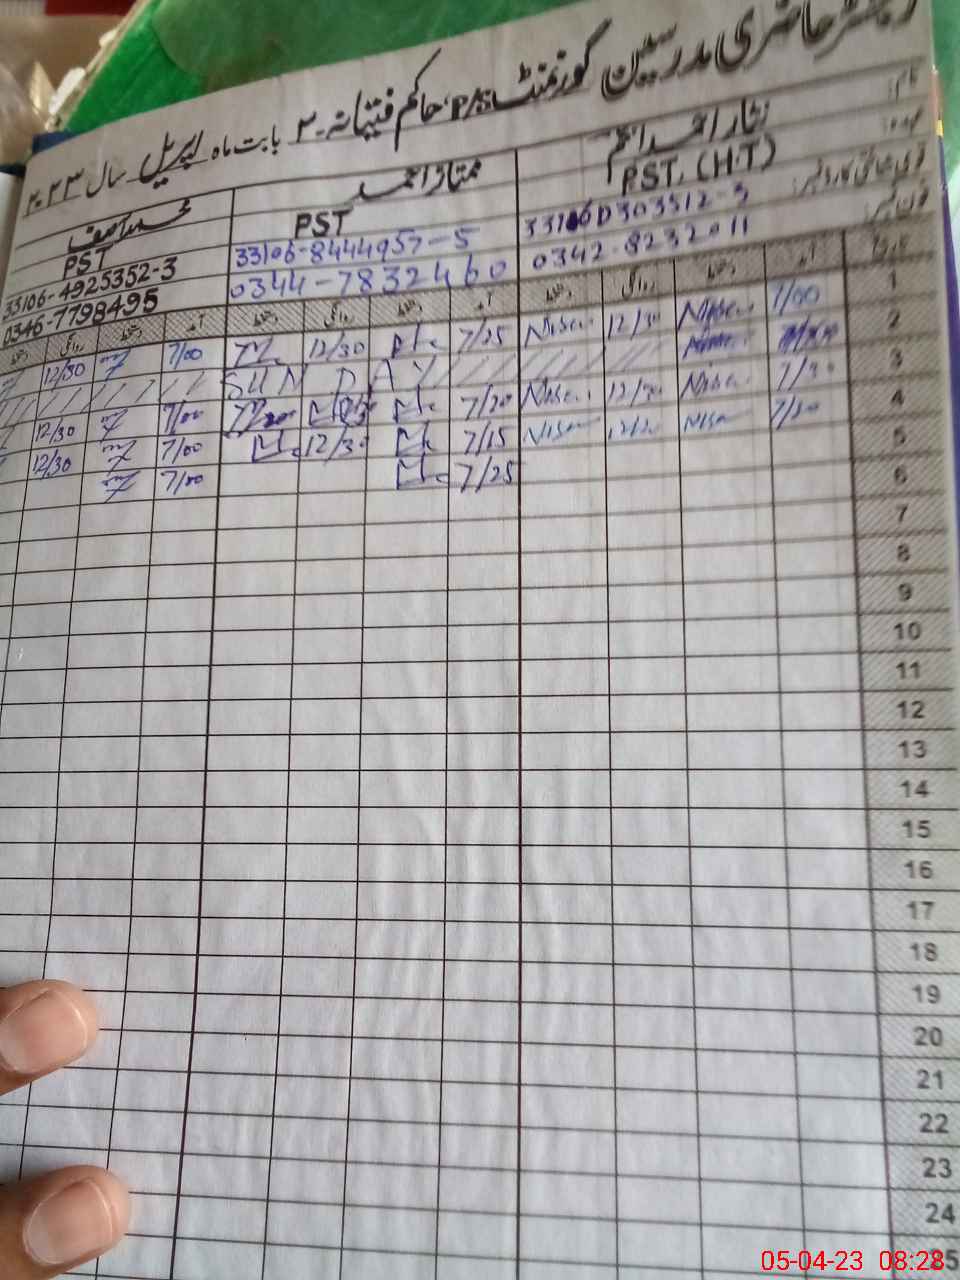 رجسٹر حاضری مدرسین گورنمنٹ P/S حاکم فتیانہ ۳۰ بابت ماہ اپریل سال ۲۰۲۳
نام:
نثار احمد انجم ممتاز احمد محمد آصف
عہدہ:
PST, (H.T) PST PST
قومی شناختی کارڈ نمبر:
33106-8444957-5 33106-4925352-3
فون نمبر:
0342-8232011 0344-7832460 0346-7798495
تاریخ آمد دستخط روانگی دستخط آمد دستخط روانگی دستخط آمد دستخط روانگی دستخط
1 7/00 Nisar 12/30 Nisar 7/25 12/30 7/00 12/30
2 SUNDAY
3 7/30 Nisar 12/30 Nisar 7/20 7/00 12/30
4 7/20 Nisar Nisar 7/15 12/30 7/00 12/30
5 7/25 7/00
6
7
8
9
10
11
12
13
14
15
16
17
18
19
20
21
22
23
24
25
05-04-23 08:28